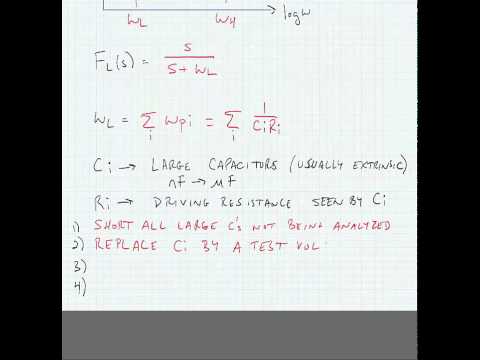 WL WH log w
FL(s) = s / s + WL
WL = Σi wpi = Σi 1 / CiRi
Ci → LARGE CAPACITORS (USUALLY EXTRINSIC)
nF → μF
Ri → DRIVING RESISTANCE SEEN BY Ci
1) SHORT ALL LARGE C's NOT BEING ANALYZED
2) REPLACE Ci BY A TEST VOL
3)
4)